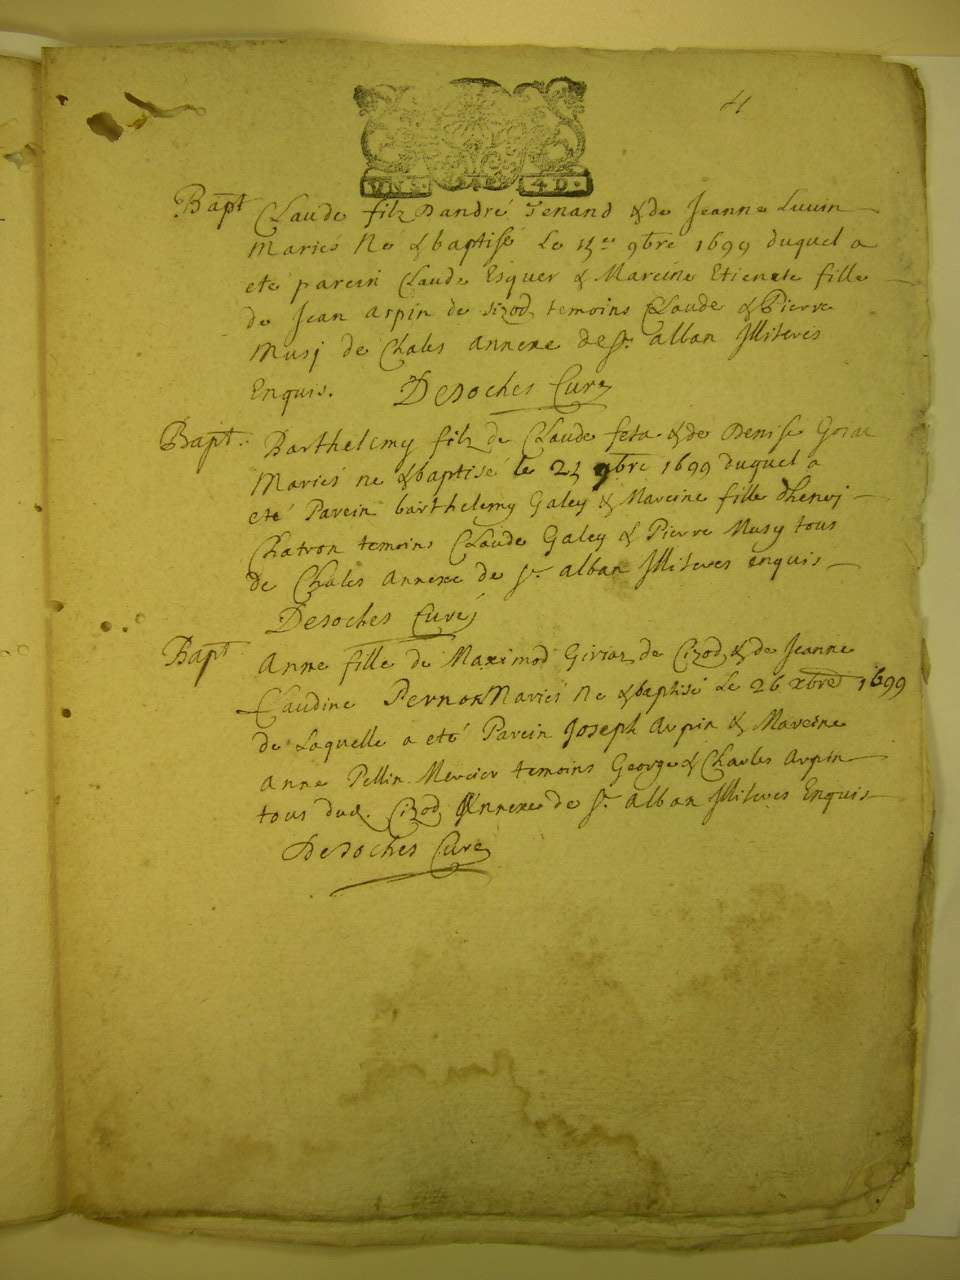 4
VN S. 4D.
Bapt Claude filz Dandré Tenand & de Jeanne
Mariés Né & baptisé Le 9bre 1699 duquel a
eté parein Claude Esquer & Mareine Etienete fille
de Jean Arpin de Sizod temoins Claude & Pierre
Musj de Chales Annexe de St. alban Illiteres
Enquis. Desoches Curé
Bapt. Barthelemy filz de Claude feta & de Denise
Mariés ne & baptisé le 25 9bre 1699 duquel a
eté Parein barthelemy Galey & Mareine fille dhenrj
Chatron temoins Claude Galey & Pierre Musy tous
de Chales Annexe de St. alban Illiteres enquis
Desoches Curé
Bapt Anne fille de Maximod de Cizod & de Jeanne
Claudine Pernon Mariés Ne & baptisé Le 26 xbre 1699
de Laquelle a eté Parein Joseph Arpin & Mareine
Anne Pellin Mercier temoins George & Charles Arpin
tous dud. Cizod Annexe de St. Alban Illiteres Enquis
Desoches Curé